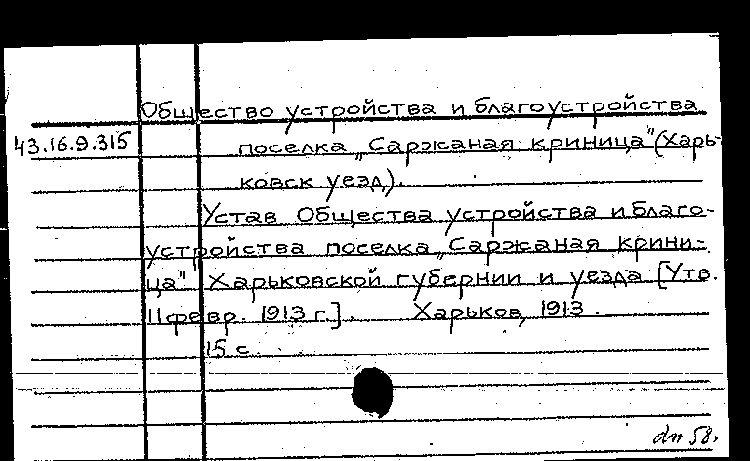 Общество устройства и благоустройства
43.16.9.315
поселка „Саржаная криница" (Харь-
ковск уезд).
Устав Общества устройства и благо-
устройства поселка „Саржаная крини-
ца" Харьковской губернии и уезда [Утв.
11 февр. 1913 г.]. Харьков, 1913.
15 с.
дп 58.